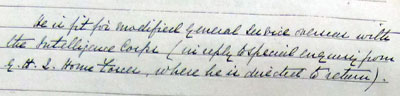 He is fit for modified General Service oversea with
the Intelligence Corps (in reply to special enquiry from
G.H.Q. Home Forces, where he is directed to return).